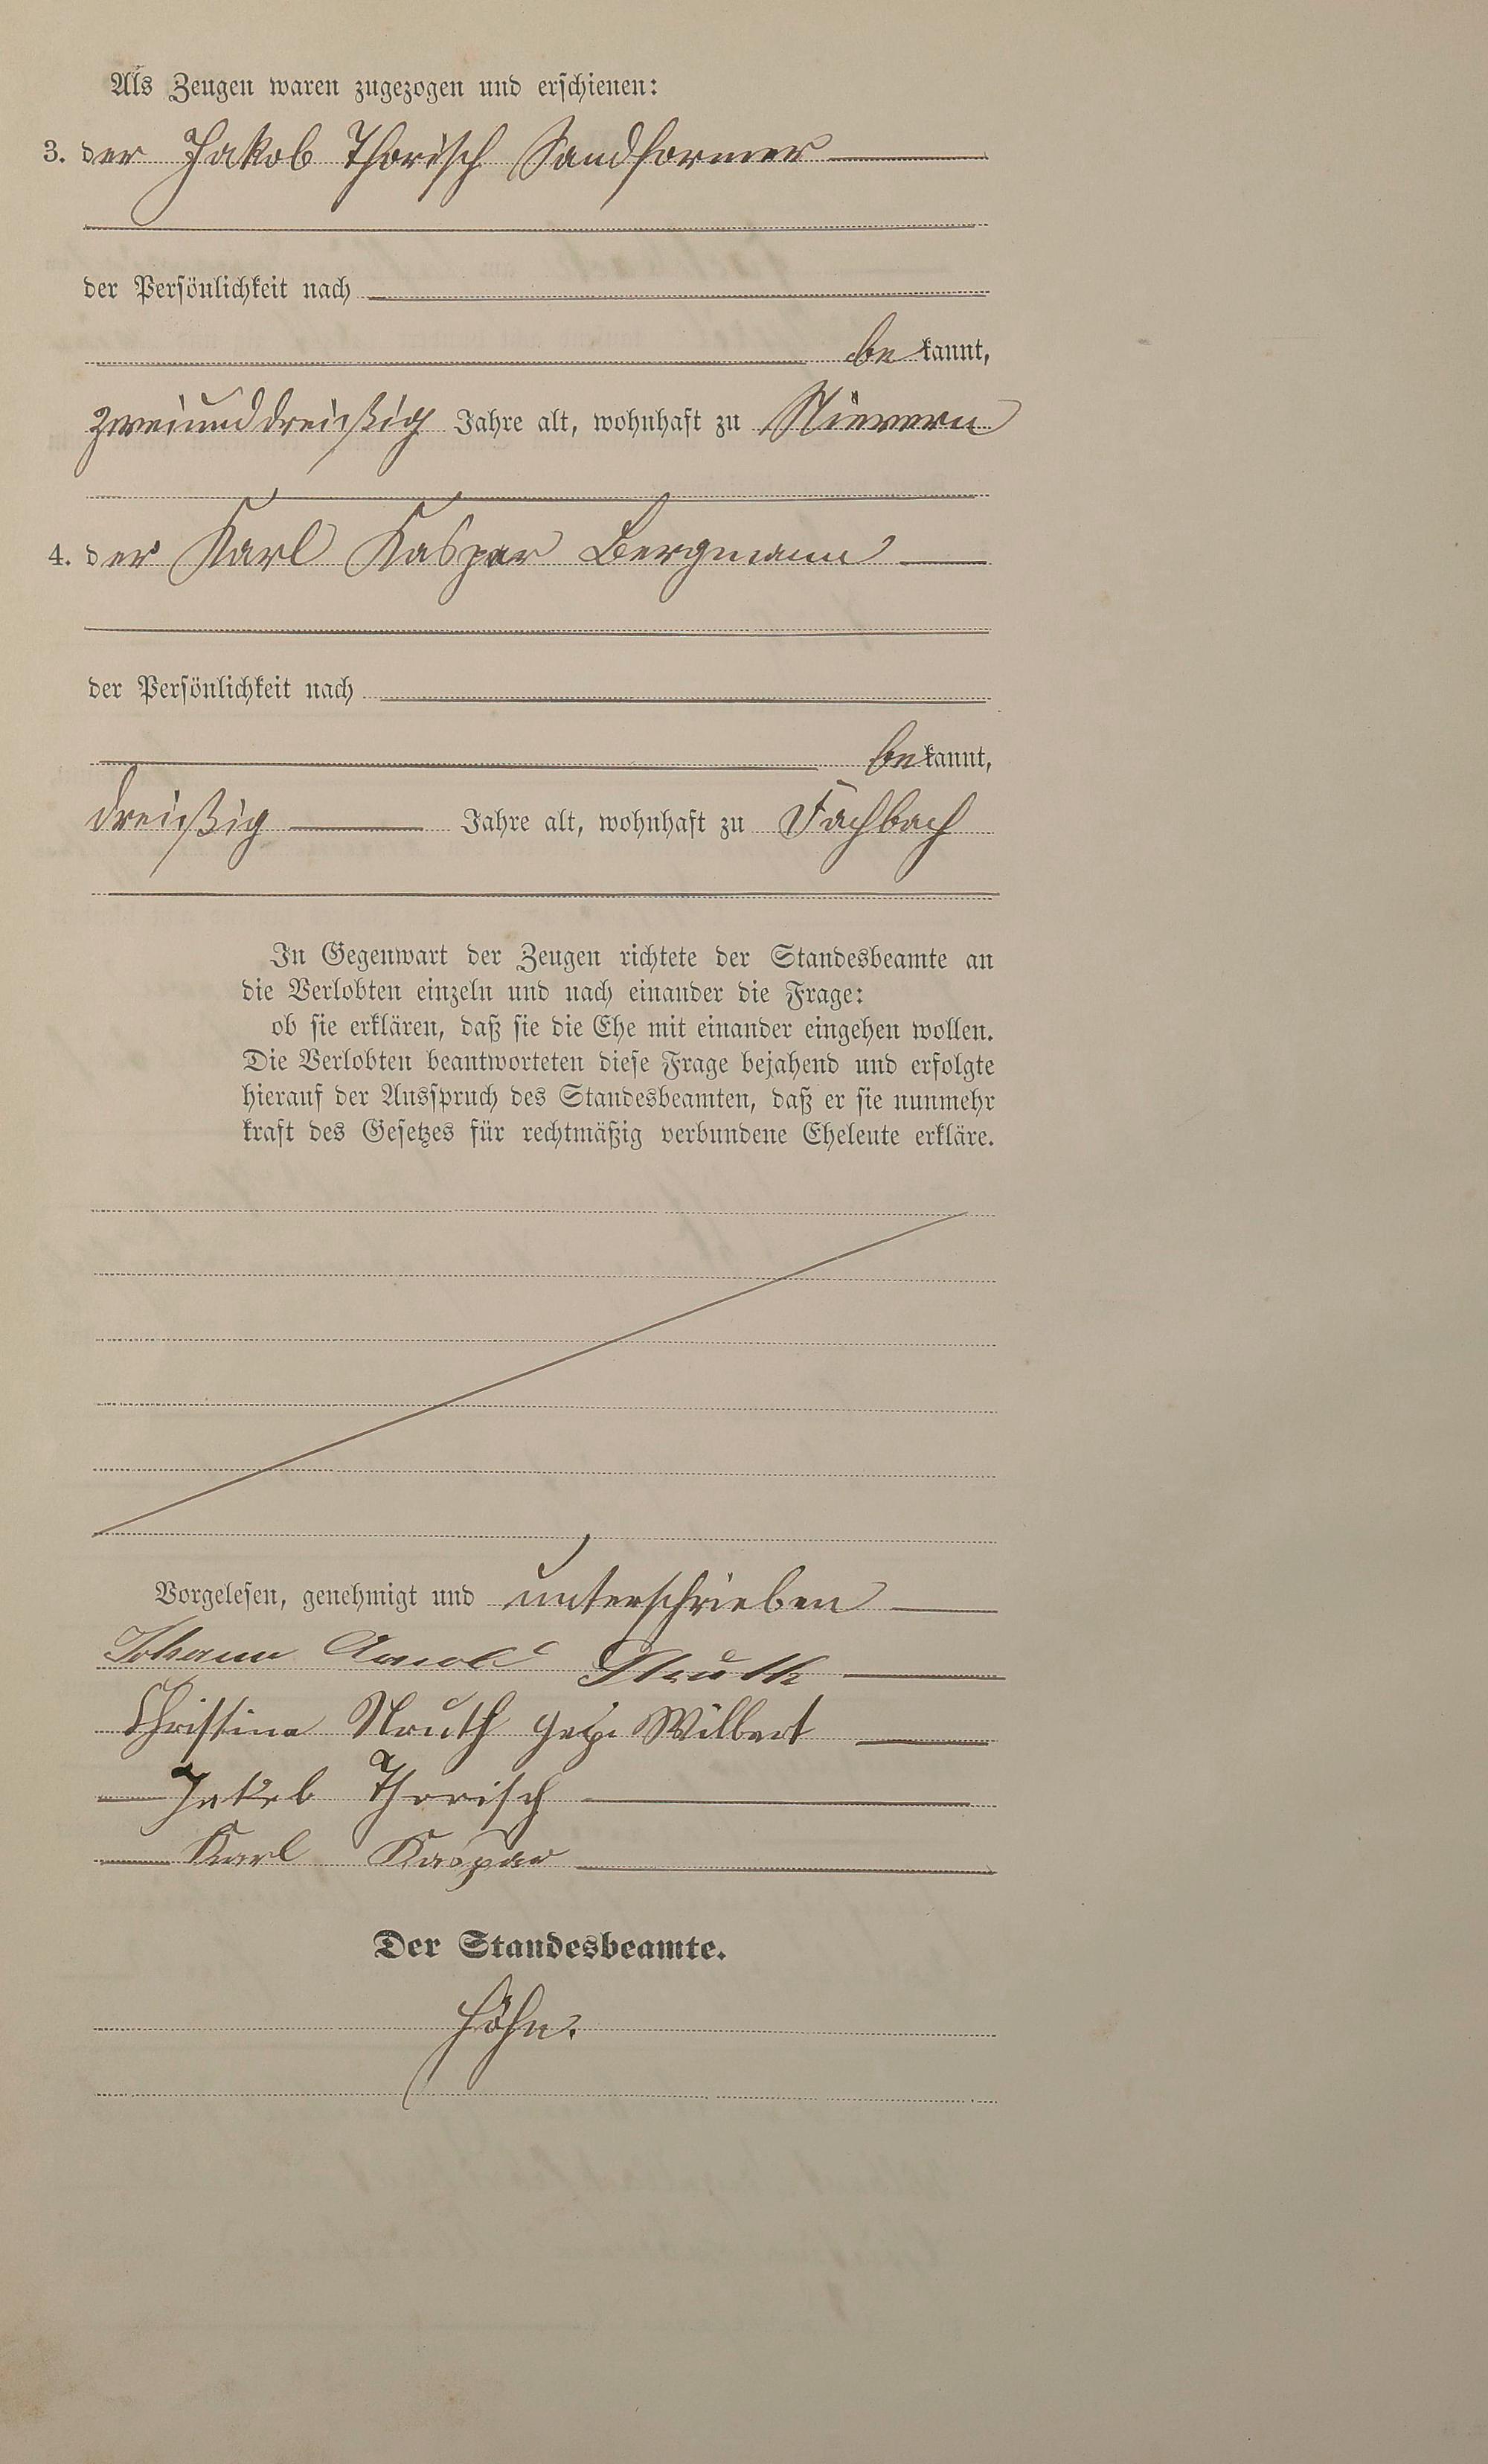 Als Zeugen waren zugezogen und erschienen:
3. der Jakob Thorisch Sandformer
der Persönlichkeit nach
be kannt,
zweiunddreißig Jahre alt, wohnhaft zu Nievern
4. der Karl Kaspar Bergmann
der Persönlichkeit nach
bekannt,
dreißig Jahre alt, wohnhaft zu Fachbach
In Gegenwart der Zeugen richtete der Standesbeamte an
die Verlobten einzeln und nach einander die Frage:
ob sie erklären, daß sie die Ehe mit einander eingehen wollen.
Die Verlobten beantworteten diese Frage bejahend und erfolgte
hierauf der Ausspruch des Standesbeamten, daß er sie nunmehr
kraft des Gesetzes für rechtmäßig verbundene Eheleute erkläre.
Vorgelesen, genehmigt und unterschrieben
Johann Arnold
Christina geb. Wilbert
Jakob Thorisch
Karl Kaspar
Der Standesbeamte.
Höhn.